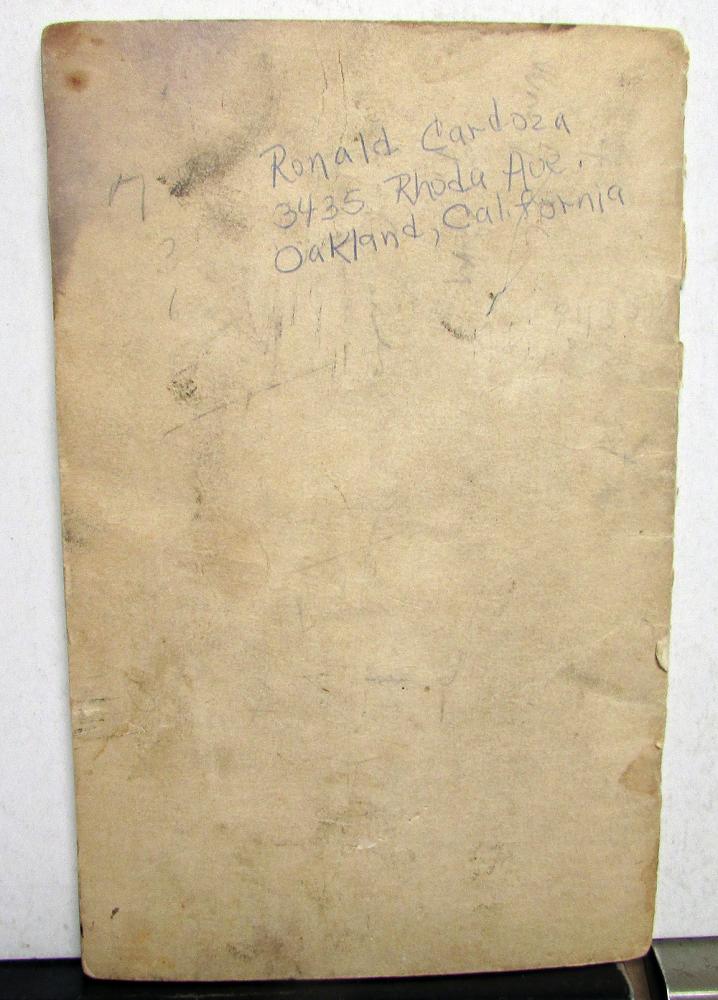 Ronald Cardoza
3435 Rhoda Ave.
Oakland, California
7